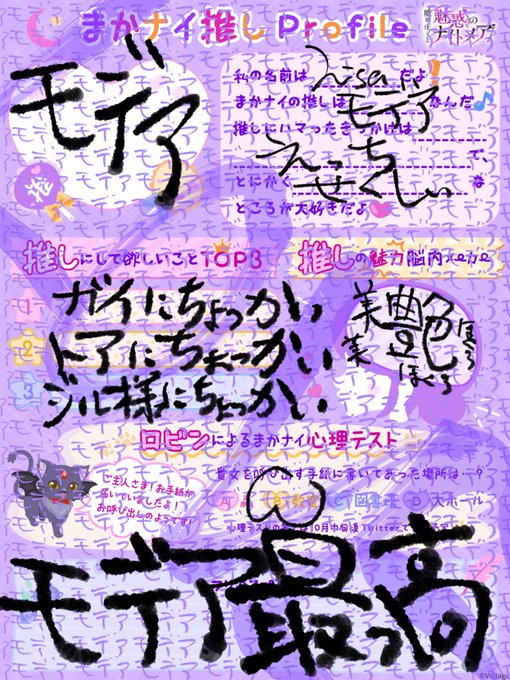 まかナイ推しProfile
魅惑の
ナイトメア
モデア
推
私の名前は
だよ!
まかナイの推しはモデアなんだ♪
推しにハマったきっかけは
えっち で、
とにかく せくしぃ な
ところが大好きだよ
推しにして欲しいことTOP3
1 ガイにちょっかい
2 トアにちょっかい
3 ジル様にちょっかい
推しの魅力脳内メーカー
美 艶 色
美 ほくろ
ロビンによるまかナイ心理テスト
ご主人さま!お手紙が
届いていましたよ!
お呼び出しのようです!
貴女を呼び出す手紙に書いてあった場所は…?
教室 図書塔 D 大ホール
心理テストの 10月中旬頃Twitterで
モデア最っ高
©Voltage